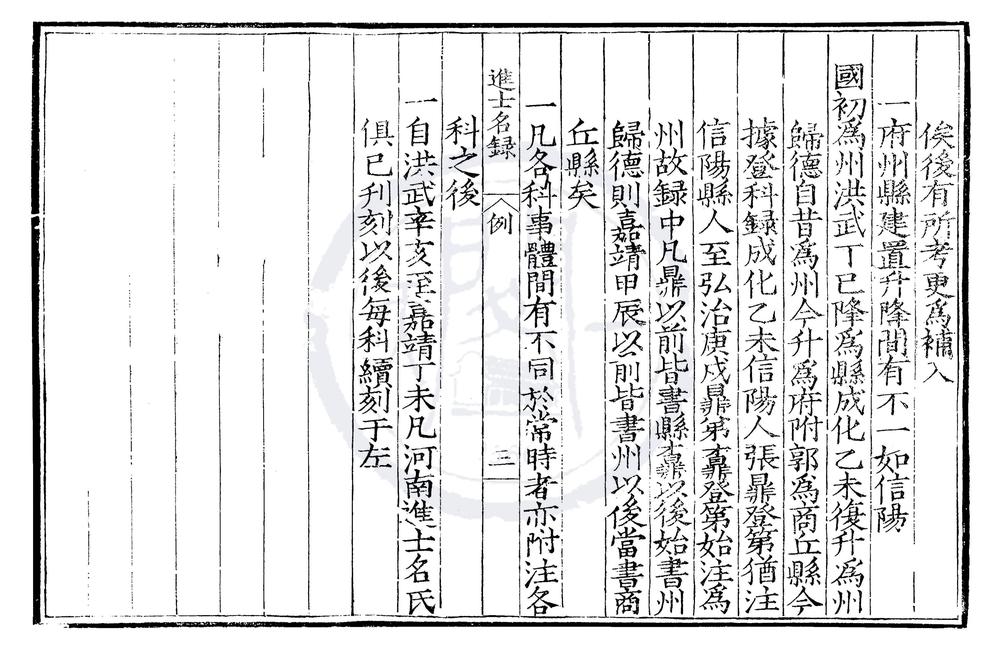 俟後有所考更爲補入
一府州縣建置升降間有不一如信陽
國初爲州洪武丁巳降爲縣成化乙未復升爲州
歸德自昔爲州今升爲府附郭爲商丘縣今
據登科録成化乙未信陽人張鼎登第猶注
信陽縣人至弘治庚戌鼎弟鼐登第始注爲
州故録中凡鼎以前皆書縣鼐以後始書州
歸德則嘉靖甲辰以前皆書州以後當書商
丘縣矣
一凡各科事體間有不同於常時者亦附注各
進士名録 例 三
科之後
一自洪武辛亥至嘉靖丁未凡河南進士名氏
俱已刋刻以後每科續刻于左